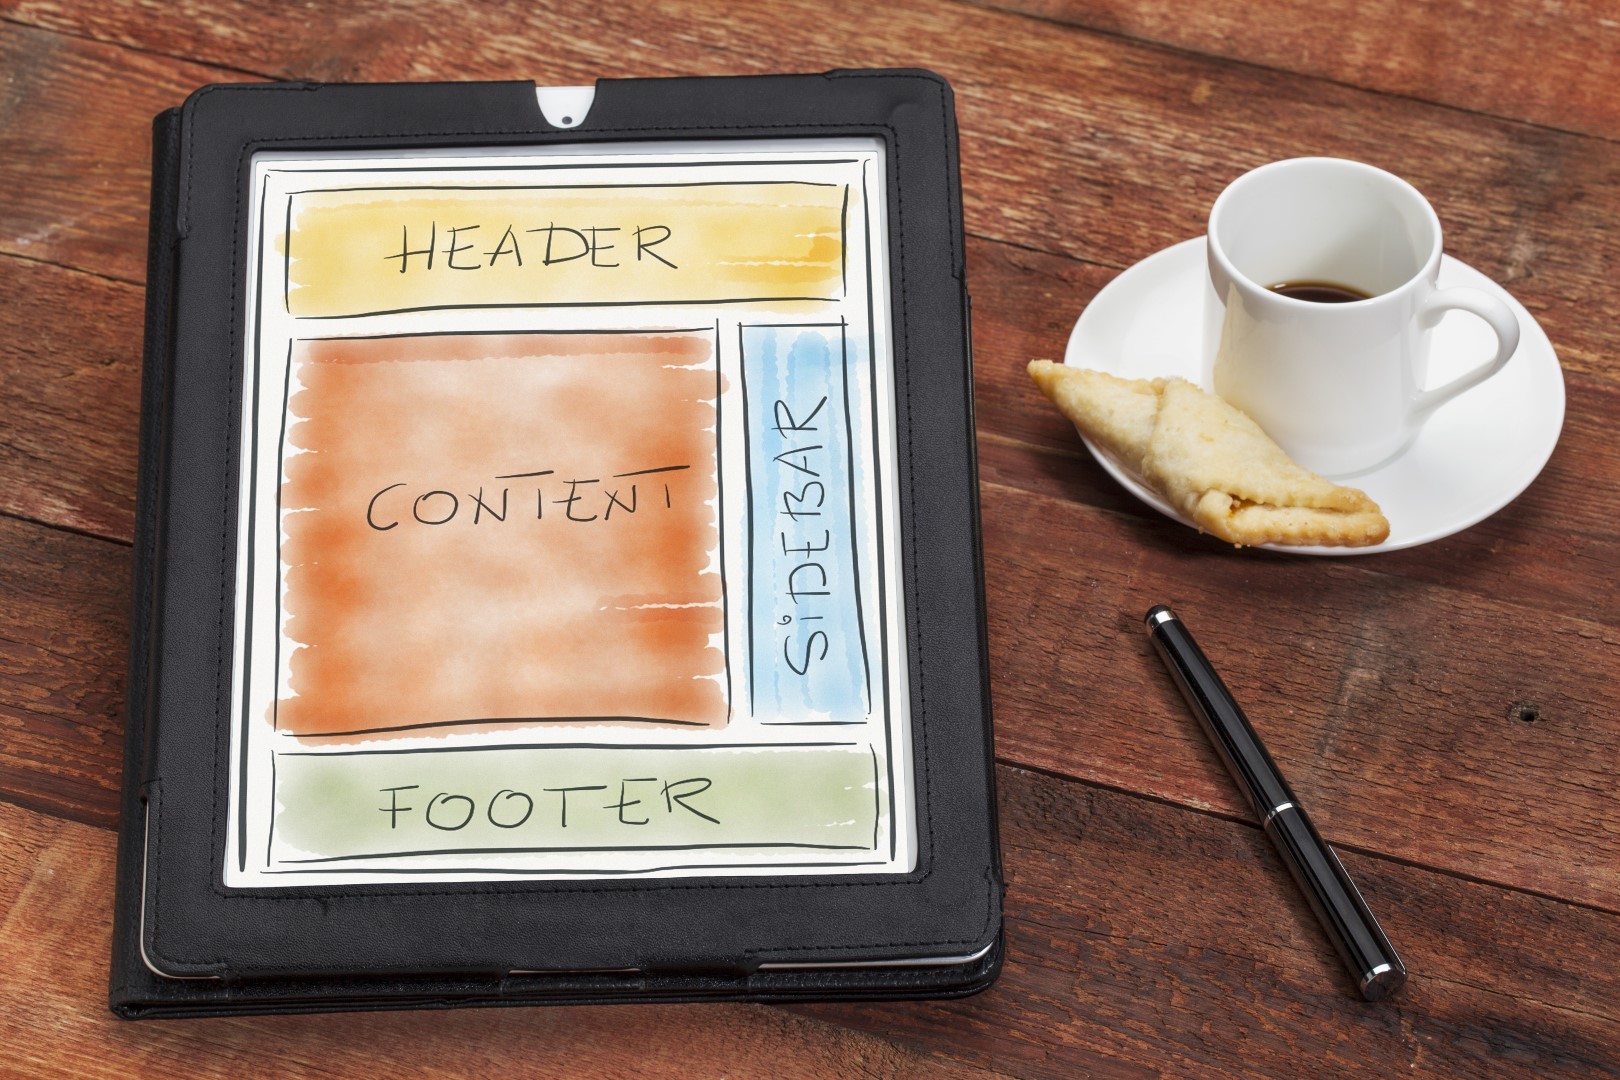 HEADER
CONTENT
SiDEBAR
FOOTER